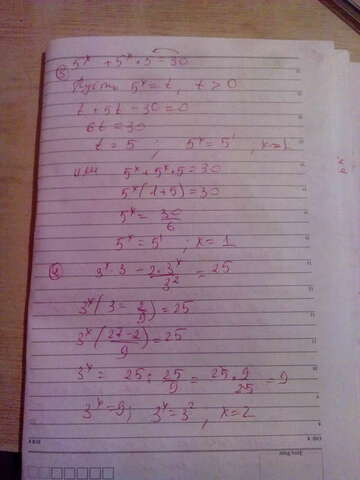 5^x + 5^x · 5 = 30
③
Пусть 5^x = t, t > 0
t + 5t - 30 = 0
6t = 30
t = 5 ; 5^x = 5^1 , x = 1
или 5^x + 5^x · 5 = 30
5^x (1 + 5) = 30
5^x = 30/6
5^x = 5^1 ; x = 1
④ 3^x · 3 - 2 · 3^x / 3^2 = 25
3^x (3 - 2/9) = 25
3^x (27 - 2 / 9) = 25
3^x = 25 : 25/9 = 25 · 9 / 25 = 9
3^x = 9; 3^x = 3^2 ; x = 2